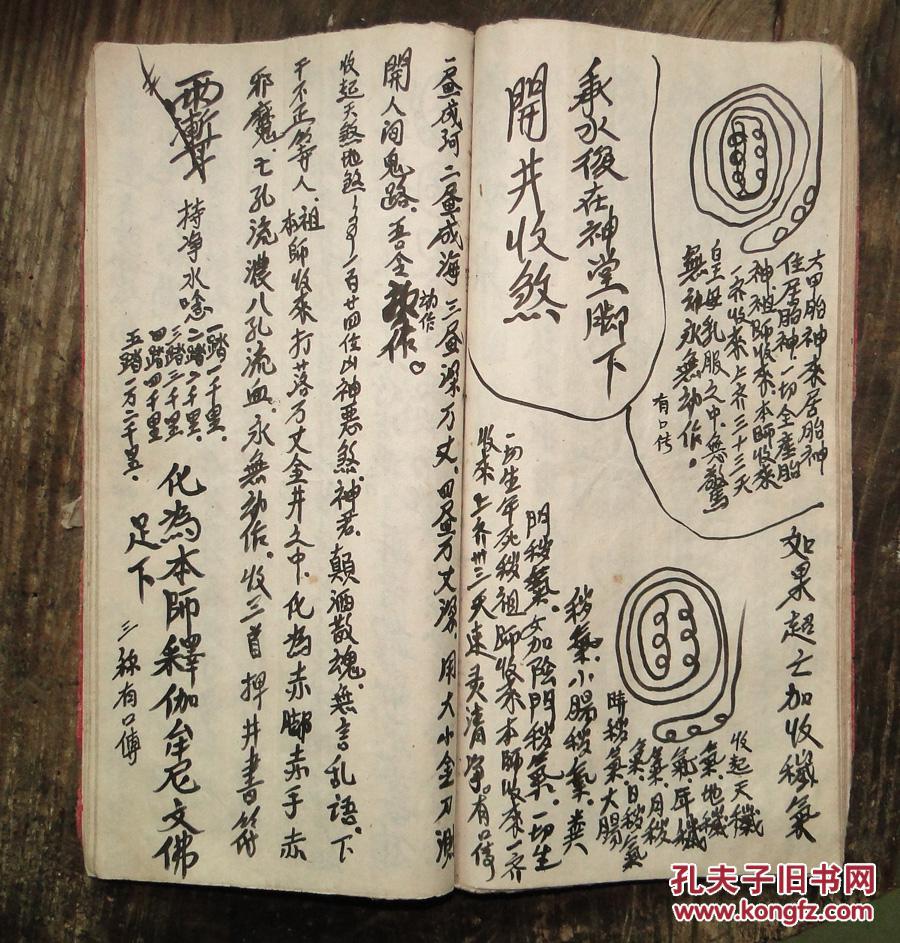 六甲胎神來居胎神
住居胎神一切全產胎
神祖師收來本師收來
一齐收來上齐三十三天
皇母乳服之中無驚
無□永無動作。
有口传
如果超亡加收穢氣
收起天穢
氣地穢
氣年穢
氣月穢
氣日穢氣
時穢氣大腸
穢氣小腸穢氣糞
門穢氣女加陰門穢氣一切生
一切生年死穢祖師收來本師收來一齐
收來上齐卅三天速灵清净。有口传
承水後在神堂脚下
開井收煞
一畫成河二畫成海三畫深万丈四畫万丈深用大小金刀
開人间鬼路吾令動作。
動作
收起天煞地煞一百廿四位凶神惡煞神君顛酒散魂無言乱語下
干不正等人祖師本師收來打落万丈金井之中化為赤脚赤手赤
邪魔七孔流濃八孔流血永無動作收三首押井書符
持净水唸
一踏一千里
二踏二千里
三踏三千里
四踏四千里
五踏一万二千里
化為本師釋伽牟尼文佛
足下
三称有口傳
孔夫子旧书网
www.kongfz.com